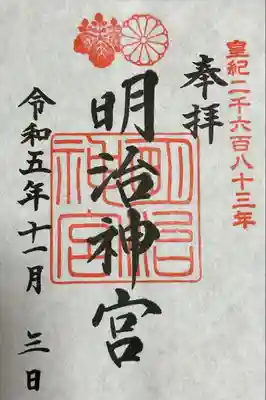 皇紀二千六百八十三年
奉拝
明治神宮
明治
神宮
令和五年十一月 三日